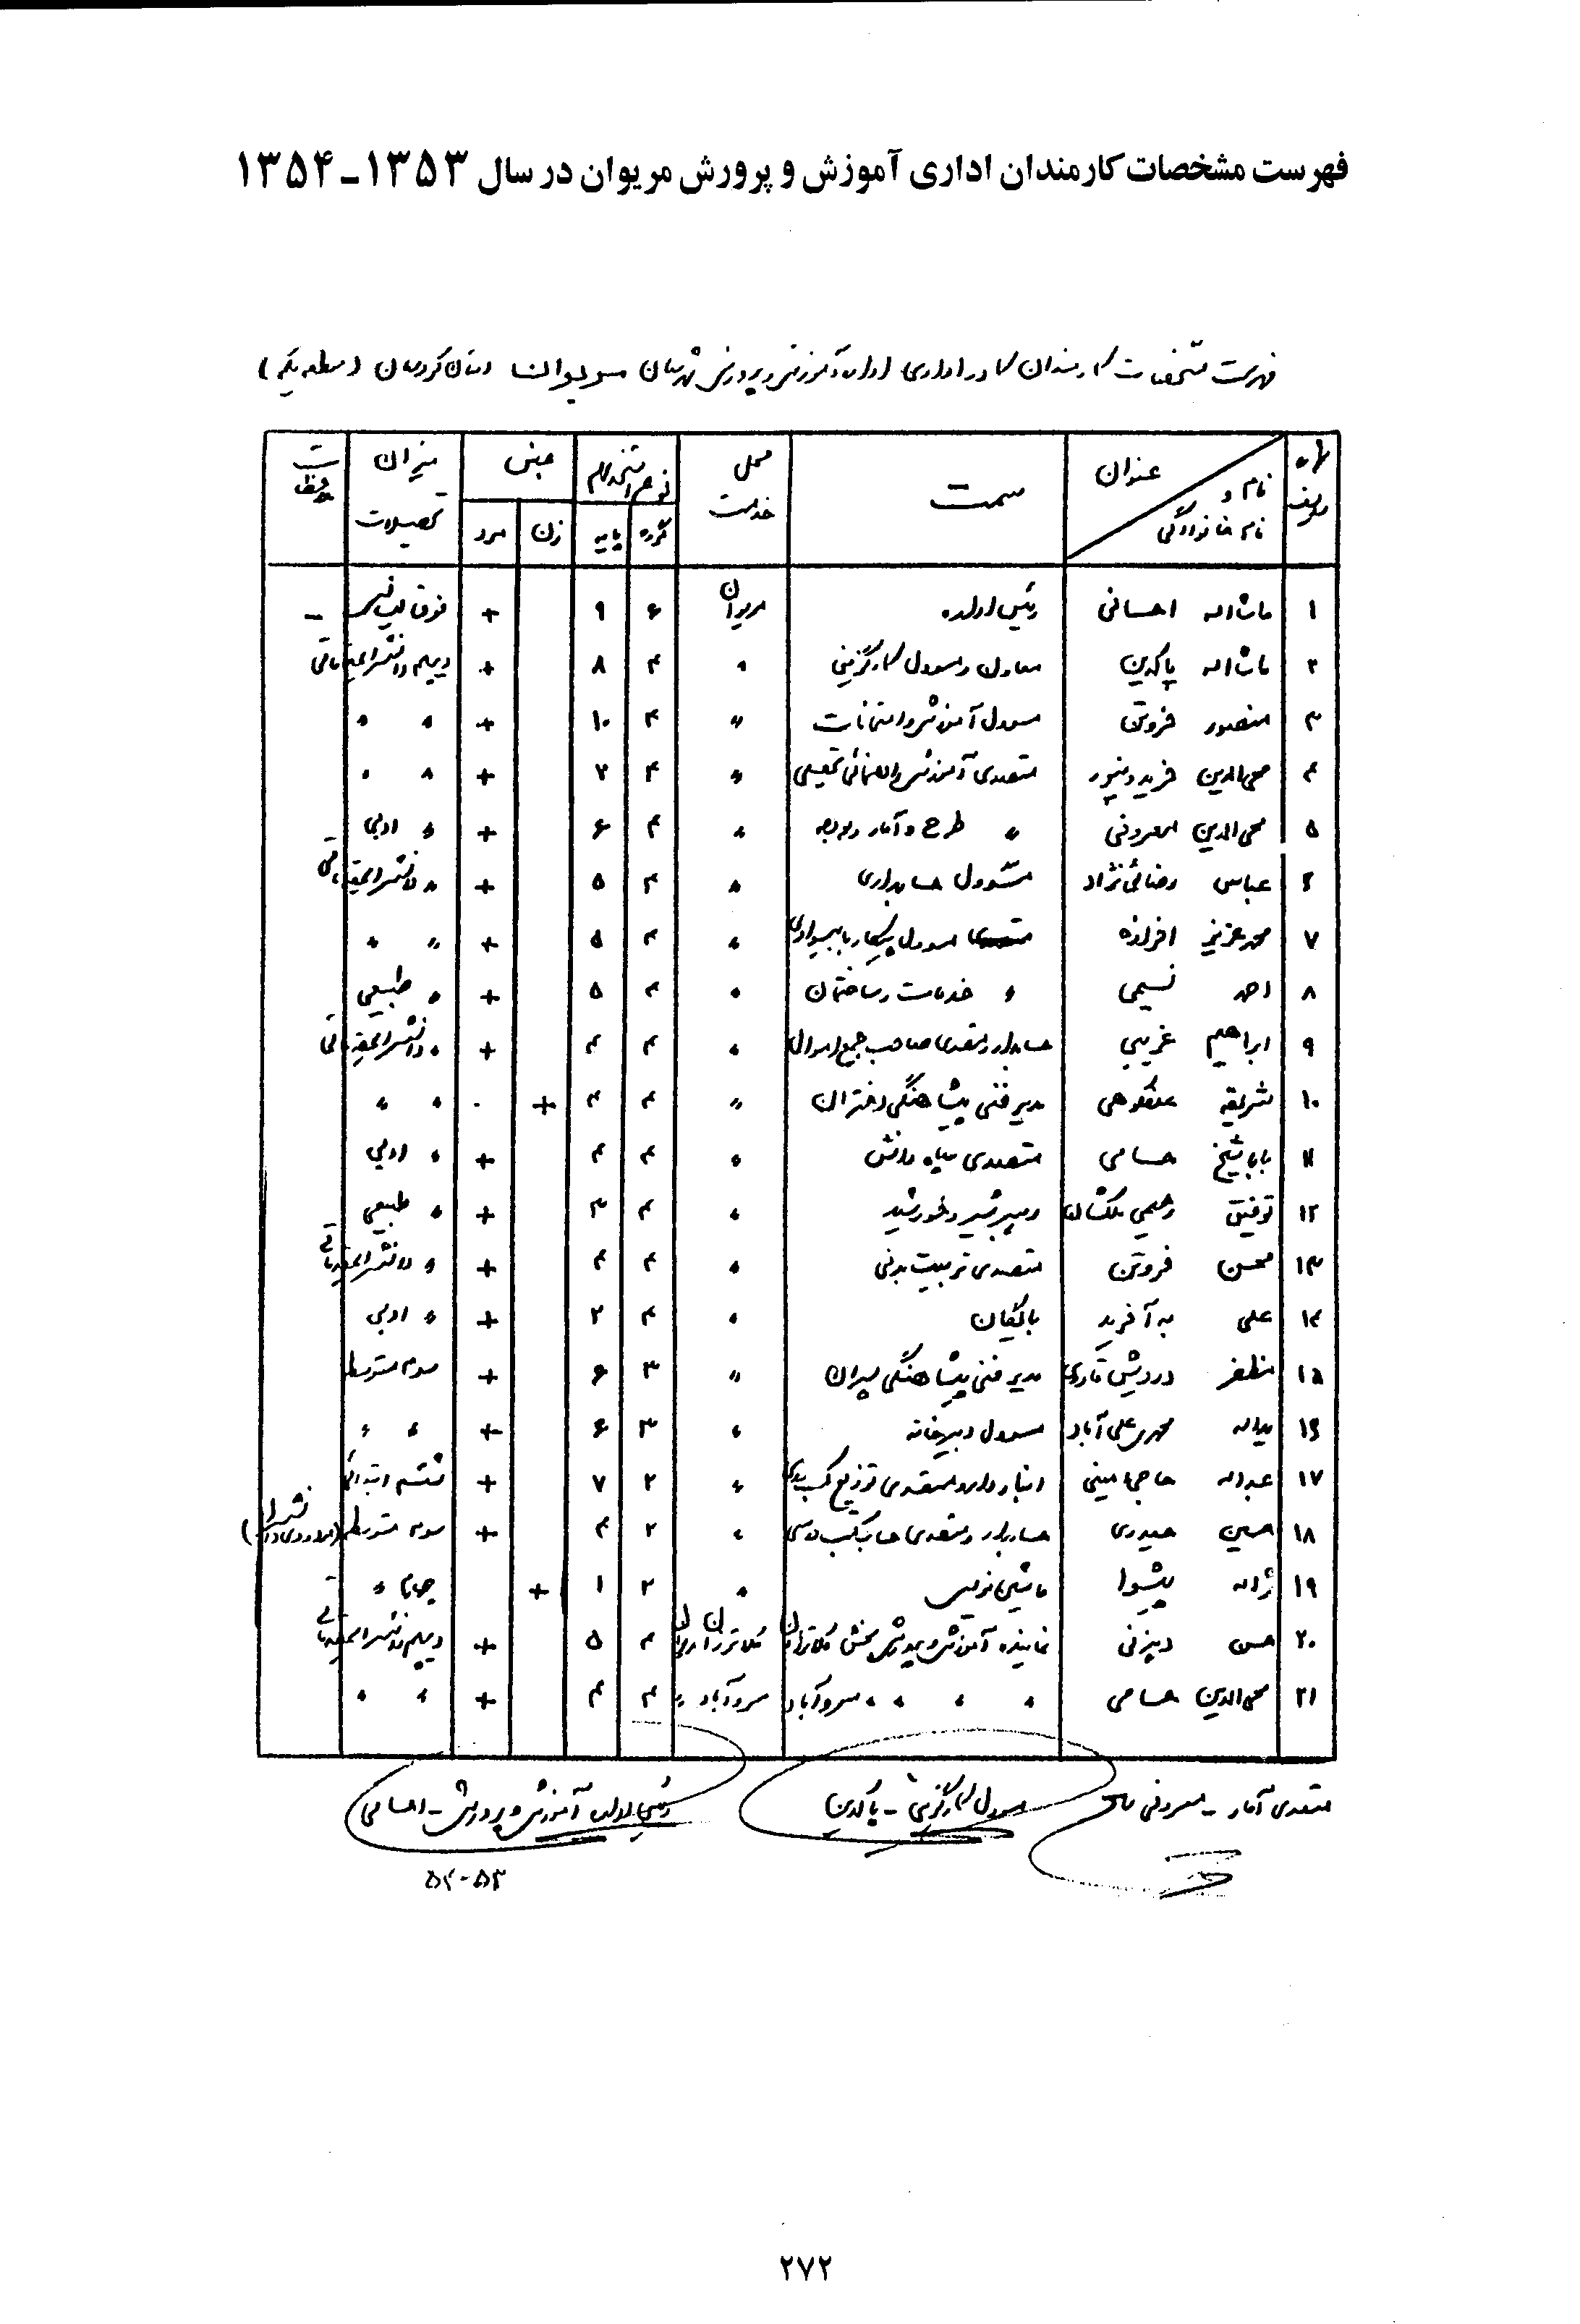 فهرست مشخصات کارمندان اداری آموزش و پرورش مریوان در سال ۱۳۵۳ـ۱۳۵۴
فهرست مشخصات کارمندان کادر اداری اداره آموزش و پرورش شهرستان مریوان استان کردستان
شماره ردیف عنوان نام و نام خانوادگی سمت محل خدمت نوع استخدام گروه پایه جنس زن مرد میزان تحصیلات ملاحظات
۱ ماشاءاله احسانی رئیس اداره مریوان ۶ ۹ + فوق لیسانس –
۲ ماشاءاله پاکدین معاون و مسوول کارگزینی " ۴ ۸ + دیپلم دانشسرای مقدماتی
۳ منصور فروتن مسوول آموزش و امتحانات " ۴ ۱۰ + " "
۴ محی‌الدین فریدونپور متصدی آموزش و راهنمائی تحصیلی " ۴ ۷ + " "
۵ محی‌الدین معروفی " طرح و آمار و بودجه " ۴ ۶ + " ادبی
۶ عباس رضائی‌نژاد مسوول حسابداری " ۴ ۵ + " دانشسرای مقدماتی
۷ محمدعزیز افرازه مسوول پیکار با بیسوادی " ۴ ۵ + " "
۸ احمد نسیمی " خدمات و ساختمان " ۴ ۵ + " طبیعی
۹ ابراهیم غریبی حسابدار و متصدی صاحب جمع اموال " ۴ ۴ + " دانشسرای مقدماتی
۱۰ شریفه مدیر فنی پیشاهنگی دختران " ۴ ۴ + " "
۱۱ باباشیخ حسامی متصدی سپاه دانش " ۴ ۴ + " ادبی
۱۲ توفیق رحیمی دبیر شیر و خورشید " ۴ ۳ + " طبیعی
۱۳ محسن فروتن متصدی تربیت بدنی " ۴ ۴ + " دانشسرای مقدماتی
۱۴ علی به‌آفرید بایگان " ۴ ۲ + " ادبی
۱۵ مظفر درویش قادری مدیر فنی پیشاهنگی پسران " ۳ ۶ + سوم متوسطه
۱۶ یداله محمدی علی‌آباد مسوول دبیرخانه " ۳ ۶ + " "
۱۷ عبداله حاجی‌امینی انباردار و متصدی توزیع کتب درسی " ۲ ۷ + ششم ابتدائی
۱۸ حسین حیدری حسابدار و متصدی حساب کتب درسی " ۲ ۴ + سوم متوسطه
۱۹ ژاله پیشوا ماشین نویس " ۲ ۱ + چهارم "
۲۰ حسن دیزنی نماینده آموزش و پرورش بخش کلاترزان کلاترزان ۴ ۵ + دیپلم دانشسرای مقدماتی
۲۱ محی‌الدین حسامی " " " " سروآباد سروآباد " ۴ ۴ + " "
متصدی آمار - معروفی مسوول کارگزینی - پاکدین رئیس اداره آموزش و پرورش - احسانی
۵۴-۵۳
۲۷۲